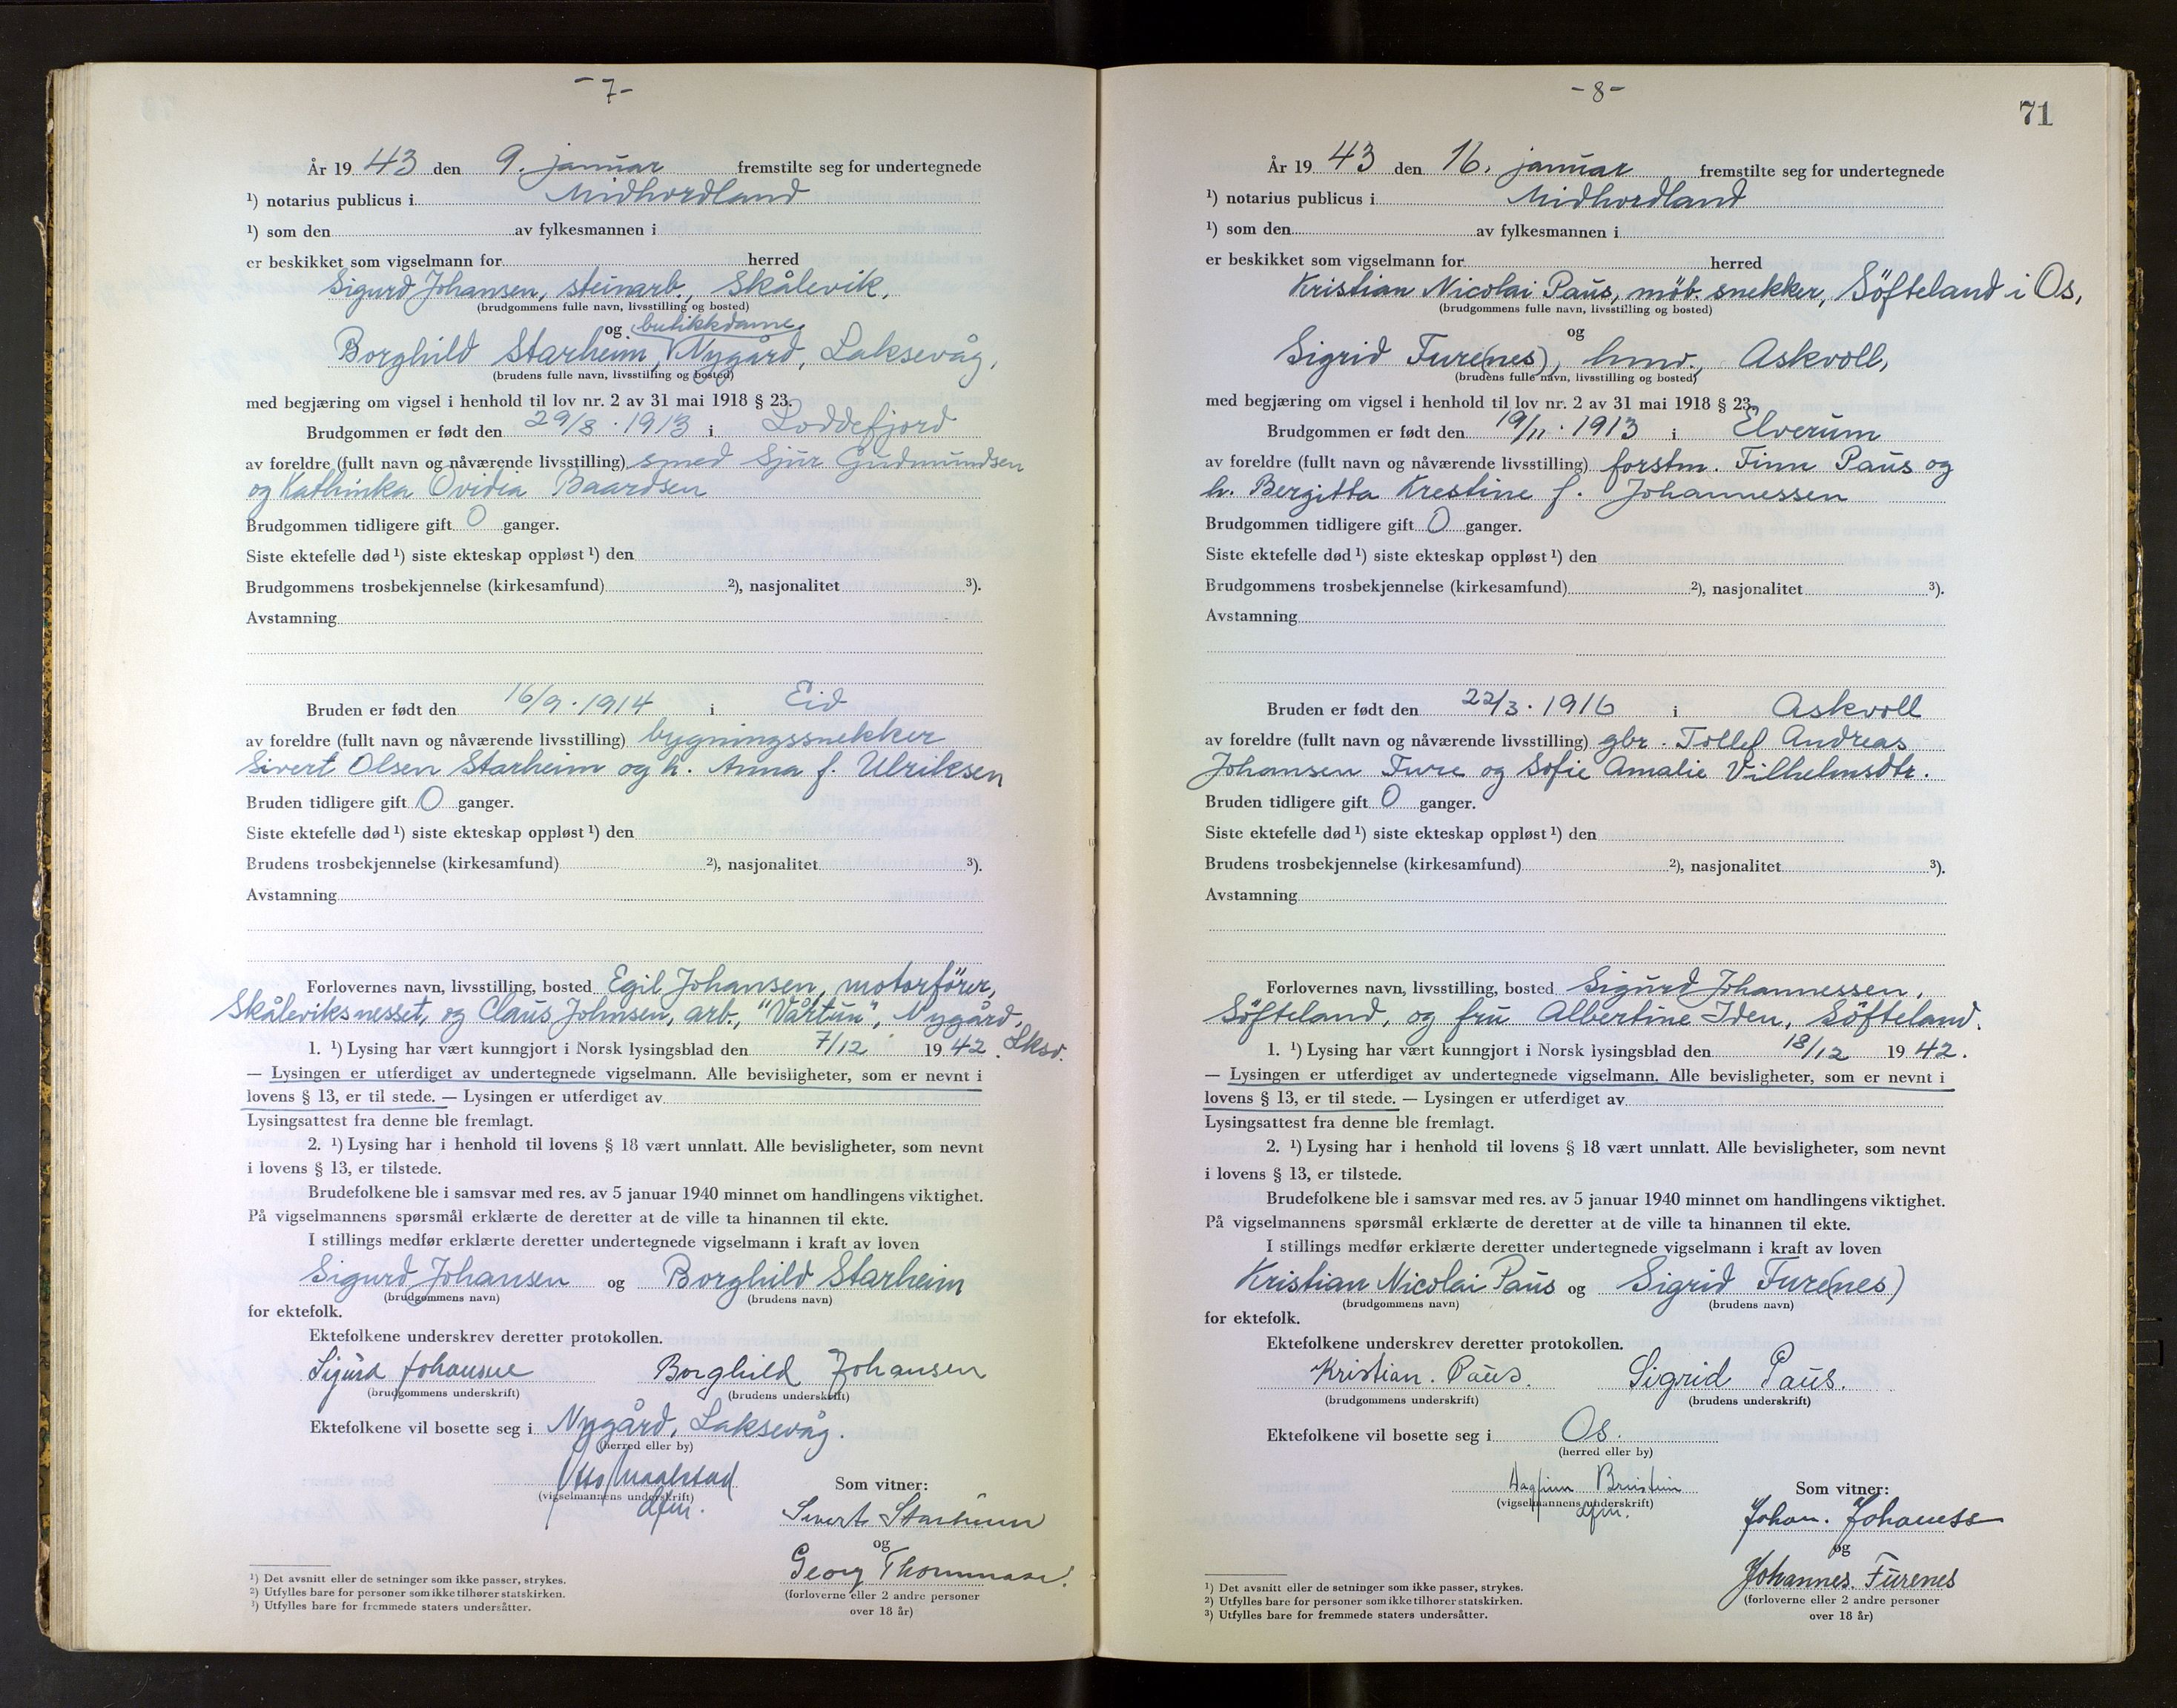 - 7 -
År 19 43 den 9. januar fremstilte seg for undertegnede
¹) notarius publicus i Midhordland
¹) som den av fylkesmannen i
er beskikket som vigselmann for herred
Sigurd Johansen, steinarb., Skålevik,
(brudgommens fulle navn, livsstilling og bosted)
og butikkdame,
Borghild Starheim, Nygård, Laksevåg,
(brudens fulle navn, livsstilling og bosted)
med begjæring om vigsel i henhold til lov nr. 2 av 31 mai 1918 § 23.
Brudgommen er født den 29/8 . 1913 i Loddefjord
av foreldre (fullt navn og nåværende livsstilling) smed Sjur Gudmundsen
og Kathinka Ovidia Baardsen
Brudgommen tidligere gift 0 ganger.
Siste ektefelle død ¹) siste ekteskap oppløst ¹) den
Brudgommens trosbekjennelse (kirkesamfund) ²), nasjonalitet ³).
Avstamning
Bruden er født den 16/9 . 1914 i Eid
av foreldre (fullt navn og nåværende livsstilling) bygningssnekker
Sivert Olsen Starheim og h. Anna f. Ulriksen
Bruden tidligere gift 0 ganger.
Siste ektefelle død ¹) siste ekteskap oppløst ¹) den
Brudens trosbekjennelse (kirkesamfund) ²), nasjonalitet ³).
Avstamning
Forlovernes navn, livsstilling, bosted Egil Johansen, motorfører,
Skåleviksnesset, og Claus Johnsen, arb., "Vårtun", Nygård, Lksv.
1. ¹) Lysing har vært kunngjort i Norsk lysingsblad den 7/12 19 42.
— Lysingen er utferdiget av undertegnede vigselmann. Alle bevisligheter, som er nevnt i
lovens § 13, er til stede. — Lysingen er utferdiget av
Lysingsattest fra denne ble fremlagt.
2. ¹) Lysing har i henhold til lovens § 18 vært unnlatt. Alle bevisligheter, som nevnt
i lovens § 13, er tilstede.
Brudefolkene ble i samsvar med res. av 5 januar 1940 minnet om handlingens viktighet.
På vigselmannens spørsmål erklærte de deretter at de ville ta hinannen til ekte.
I stillings medfør erklærte deretter undertegnede vigselmann i kraft av loven
Sigurd Johansen og Borghild Starheim
(brudgommens navn) (brudens navn)
for ektefolk.
Ektefolkene underskrev deretter protokollen.
Sigurd Johansen Borghild Johansen
(brudgommens underskrift) (brudens underskrift)
Ektefolkene vil bosette seg i Nygård, Laksevåg.
(herred eller by)
Otto
(vigselmannens underskrift) Som vitner:
dfm.
Sivert Starheim
og
Georg
(forloverne eller 2 andre personer
over 18 år)
¹) Det avsnitt eller de setninger som ikke passer, strykes.
²) Utfylles bare for personer som ikke tilhører statskirken.
³) Utfylles bare for fremmede staters undersåtter.
- 8 -
71
År 19 43 den 16. januar fremstilte seg for undertegnede
¹) notarius publicus i Midhordland
¹) som den av fylkesmannen i
er beskikket som vigselmann for herred
Kristian Nicolai Paus, møb. snekker, Søfteland i Os,
(brudgommens fulle navn, livsstilling og bosted)
og
Sigrid Fure(nes), hmv., Askvoll,
(brudens fulle navn, livsstilling og bosted)
med begjæring om vigsel i henhold til lov nr. 2 av 31 mai 1918 § 23.
Brudgommen er født den 19/11 . 1913 i Elverum
av foreldre (fullt navn og nåværende livsstilling) forstm. Finn Paus og
h. Bergitta Krestine f. Johannessen
Brudgommen tidligere gift 0 ganger.
Siste ektefelle død ¹) siste ekteskap oppløst ¹) den
Brudgommens trosbekjennelse (kirkesamfund) ²), nasjonalitet ³).
Avstamning
Bruden er født den 22/3 . 1916 i Askvoll
av foreldre (fullt navn og nåværende livsstilling) gbr. Tollef Andreas
Johansen Fure og Sofie Amalie Vilhelmsdtr.
Bruden tidligere gift 0 ganger.
Siste ektefelle død ¹) siste ekteskap oppløst ¹) den
Brudens trosbekjennelse (kirkesamfund) ²), nasjonalitet ³).
Avstamning
Forlovernes navn, livsstilling, bosted Sigurd Johannessen,
Søfteland, og fru Albertine Iden, Søfteland.
1. ¹) Lysing har vært kunngjort i Norsk lysingsblad den 18/12 19 42.
— Lysingen er utferdiget av undertegnede vigselmann. Alle bevisligheter, som er nevnt i
lovens § 13, er til stede. — Lysingen er utferdiget av
Lysingsattest fra denne ble fremlagt.
2. ¹) Lysing har i henhold til lovens § 18 vært unnlatt. Alle bevisligheter, som nevnt
i lovens § 13, er tilstede.
Brudefolkene ble i samsvar med res. av 5 januar 1940 minnet om handlingens viktighet.
På vigselmannens spørsmål erklærte de deretter at de ville ta hinannen til ekte.
I stillings medfør erklærte deretter undertegnede vigselmann i kraft av loven
Kristian Nicolai Paus og Sigrid Fure(nes)
(brudgommens navn) (brudens navn)
for ektefolk.
Ektefolkene underskrev deretter protokollen.
Kristian. Paus. Sigrid Paus.
(brudgommens underskrift) (brudens underskrift)
Ektefolkene vil bosette seg i Os.
(herred eller by)
(vigselmannens underskrift) Som vitner:
dfm.
Johan.
og
Johannes Furenes
(forloverne eller 2 andre personer
over 18 år)
¹) Det avsnitt eller de setninger som ikke passer, strykes.
²) Utfylles bare for personer som ikke tilhører statskirken.
³) Utfylles bare for fremmede staters undersåtter.